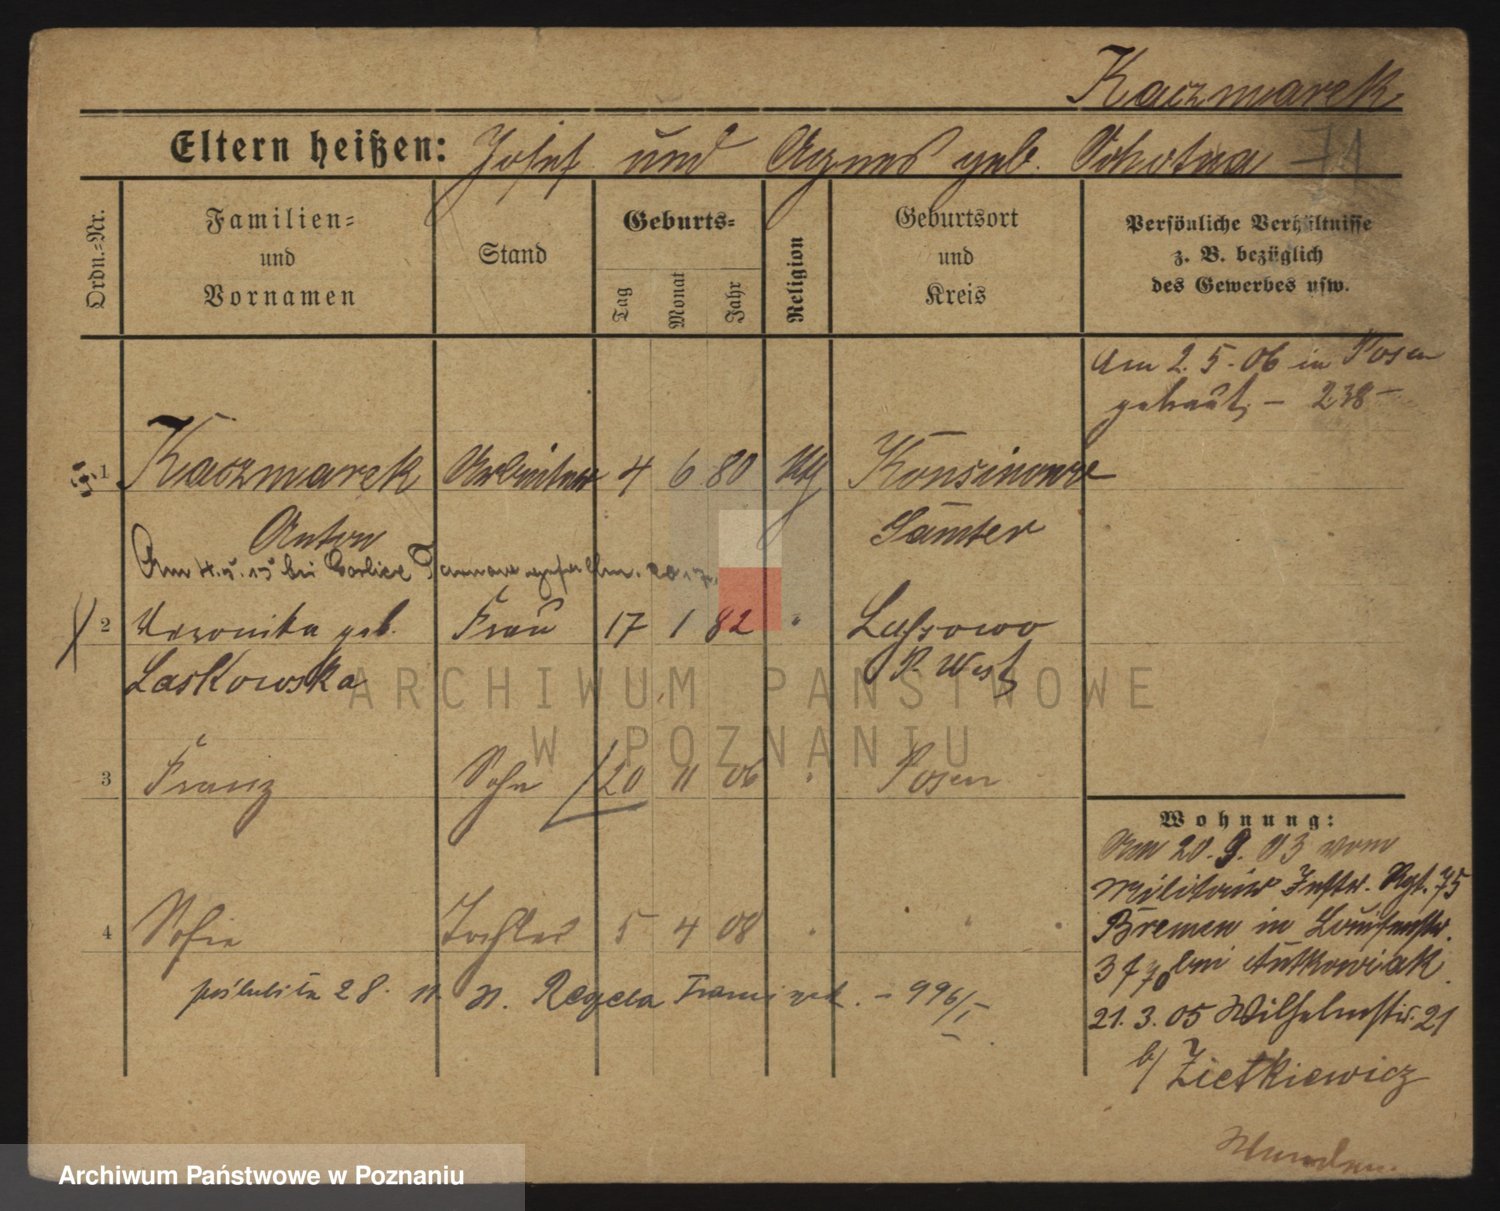 Kaczmarek
Eltern heißen: Josef und Agnes geb. Sokotwa
Ordn.=Nr.
Familien=
und
Vornamen
Stand
Geburts=
Tag Monat Jahr
Religion
Geburtsort
und
Kreis
Persönliche Verhältnisse
z. B. bezüglich
des Gewerbes usw.
Am 2.5.06 in Posen
getraut – 238 –
1 Kaczmarek Arbeiter 4 6 80
Anton Samter
Am bei Gorlice
2 Veronika geb. Frau 17 1 82 Lussowo
Laskowska P. West
3 Franz Sohn 20 11 06 Posen
4 Sofie Tochter 5 4 08
28. Regela – 996/I
Wohnung:
Am 20. 9. 03 vom
Militair Inftr. Rgt. 75
Bremen in Louisenstr.
bei Antkowiak
21. 3. 05 Wilhelmstr. 21
b/ Zietkiewicz
ARCHIWUM PAŃSTWOWE
W POZNANIU
Archiwum Państwowe w Poznaniu